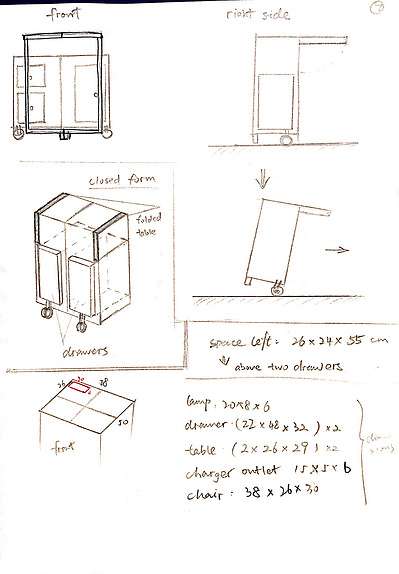 front
right side
closed form
folded
table
drawers
space left: 26 x 24 x 55 cm
above two drawers
38
50
front
lamp: 20x8x6
drawer: (22 x 48 x 32) x2
table: (2 x 26 x 29) x2
charger outlet 15x5x6
chair: 38 x 26 x 30